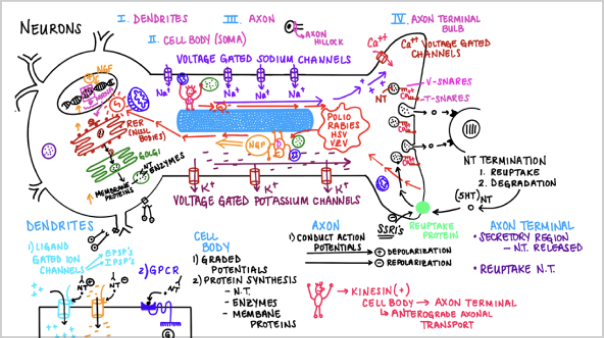 NEURONS
I. DENDRITES
II. CELL BODY (SOMA)
III. AXON
AXON HILLOCK
IV. AXON TERMINAL BULB
VOLTAGE GATED SODIUM CHANNELS
Na+ Na+ Na+ Na+
Ca++
Ca++ VOLTAGE GATED CHANNELS
NT
V-SNARES
T-SNARES
NGF
RER (NISSL BODIES)
GOLGI
NT
ENZYMES
MEMBRANE PROTEINS
NGF
POLIO
RABIES
HSV
VZV
K+ K+ K+
VOLTAGE GATED POTASSIUM CHANNELS
NT TERMINATION
1. REUPTAKE
2. DEGRADATION
(5HT) NT
SSRI's
REUPTAKE PROTEIN
DENDRITES
1) LIGAND GATED ION CHANNELS
EPSP's
IPSP's
2) GPCR
NT
NT
G
CELL BODY
1) GRADED POTENTIALS
2) PROTEIN SYNTHESIS
- N.T.
- ENZYMES
- MEMBRANE PROTEINS
AXON
1) CONDUCT ACTION POTENTIALS
+ DEPOLARIZATION
- REPOLARIZATION
→ KINESIN (+)
CELL BODY → AXON TERMINAL
↳ ANTEROGRADE AXONAL TRANSPORT
AXON TERMINAL
• SECRETORY REGION
- N.T. RELEASED
• REUPTAKE N.T.